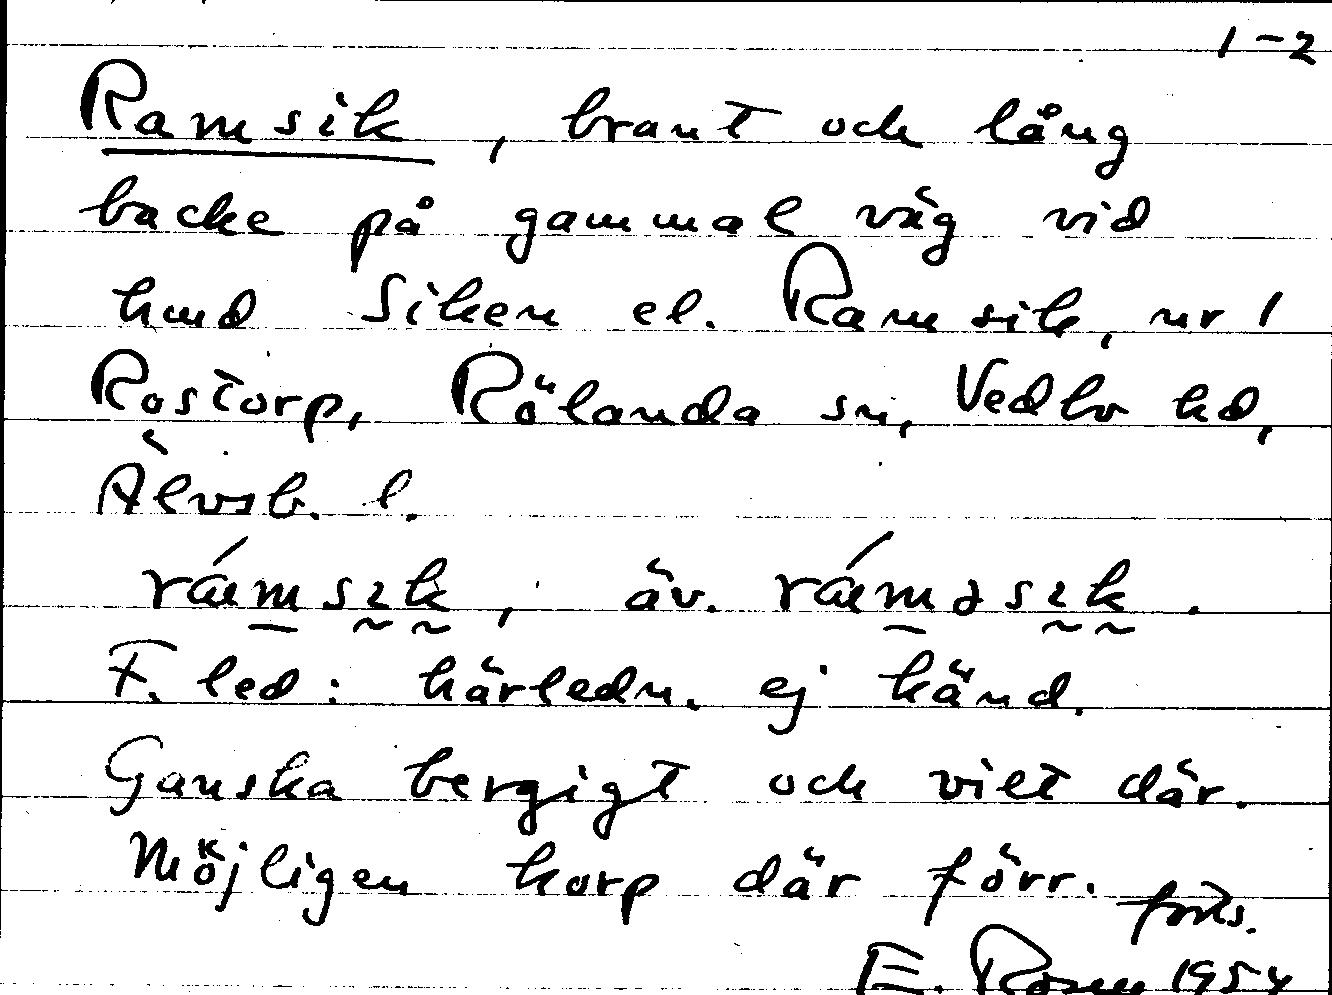 1-2
Ramsik, brant och lång
backe på gammal väg vid
hmd Siken el. Ramsik, nr 1
Rostorp, Rölanda sn, Vedbo hd,
Älvsb. l.
F. led: härledn. ej känd.
Ganska bergigt och vilt där.
Möjligen korp där förr.
forts.
E. Rosen 1954